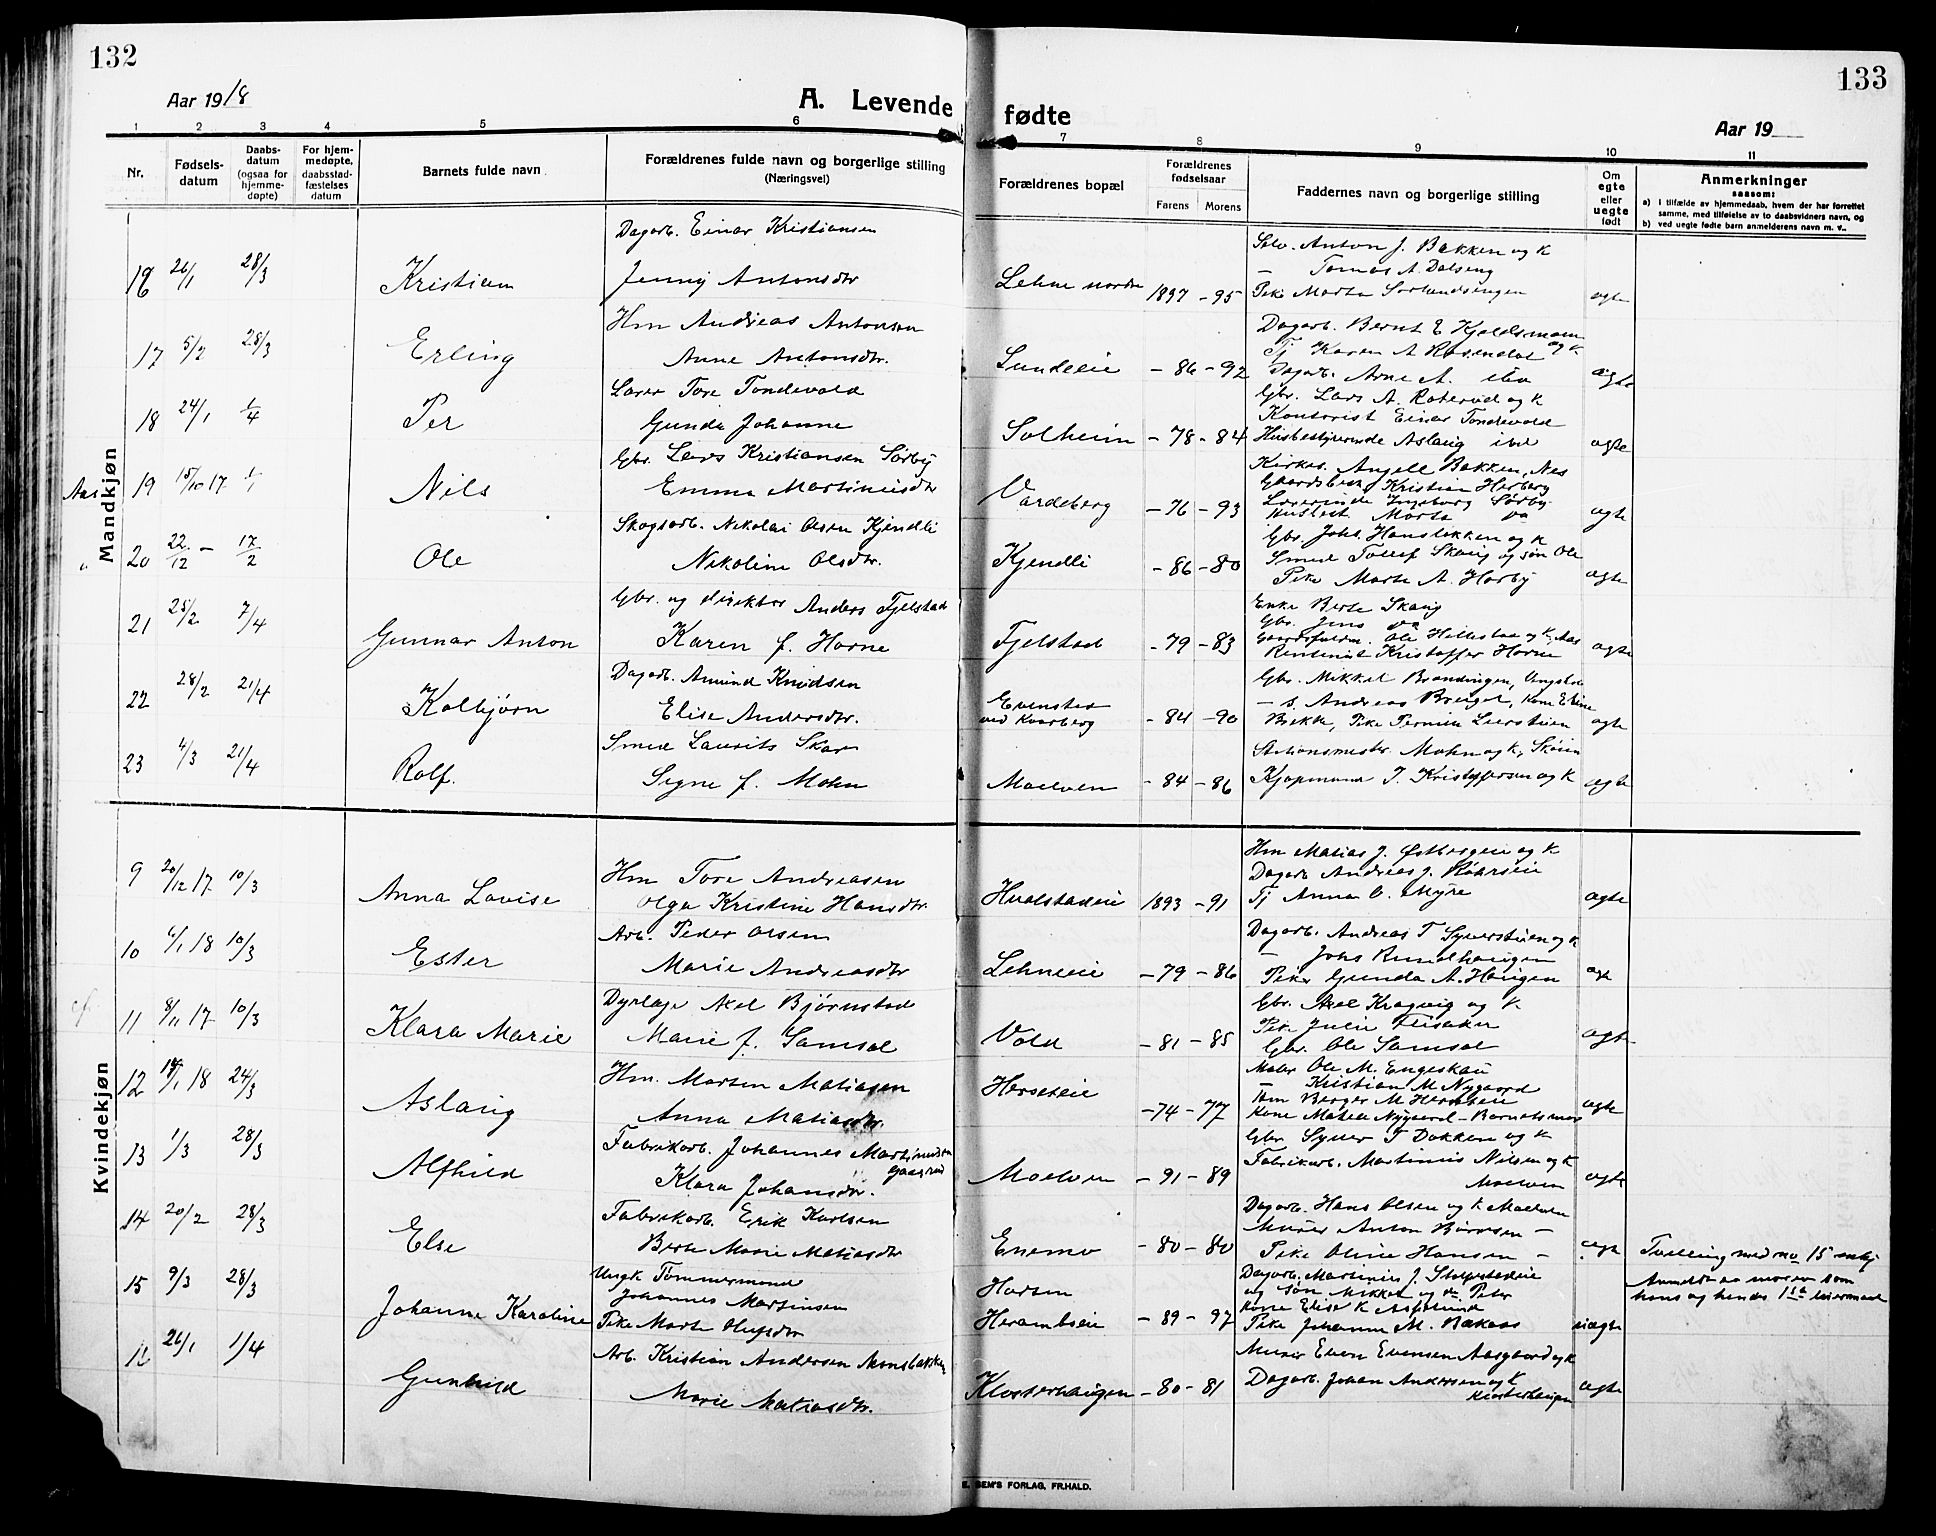 132
133
Aar 1918
A. Levende fødte
Aar 19
1 2 3 4 5 6 7 8 9 10 11
Nr.
Fødsels-
datum
Daabs-
datum
(ogsaa for
hjemme-
døpte)
For hjem-
medøpte,
daabsstad-
fæstelses
datum
Barnets fulde navn
Forældrenes fulde navn og borgerlige stilling
(Næringsvei)
Forældrenes bopæl
Forældrenes
fødselsaar
Farens Morens
Faddernes navn og borgerlige stilling
Om
egte
eller
uegte
født
Anmerkninger
saasom:
a) i tilfælde av hjemmedaab, hvem der har forrettet
samme, med tilføielse av to daabsvidners navn, og
b) ved uegte fødte barn anmelderens navn m. v..
Mandkjøn
Dagarb. Einar Kristiansen
16 26/1 28/3 Kristian Jenny Antonsdtr Lehne nordre 1897 - 95 egte
Selv. Anton J. Bakken og k
— Tomas A. Dalseng
Pike Marta Sorlundsengen
Hm Andreas Antonsen
17 5/2 28/3 Erling Anne Antonsdtr. Lundeeie - 86 - 92 egte
Dagarb. Bernt E Kjeldsmoen og k.
Tj Karen A Rosendal
Dagarb. Arne A. ibd
Lærer Tore Tondevold
18 24/1 1/4 Per Gunda Johanne Solheim - 78 - 84 egte
Gbr. Lars A. Roterud og k
Kontorist Einar Tondevold
Husbestyrerinde Aslaug ibd
Gbr. Lars Kristiansen Sørby
19 15/10 17 1/1 Nils Emma Martiniusdtr Vardeberg - 76 - 93 egte
Kirkes. Angell Bakken, Nes
Gaardsbest. Kristian Herberg
Lærerinde Ingeborg Sørby
Husbest. Marta do
Skogsarb. Nikolai Olsen Kjendli
20 22/12 - 17/2 Ole Nikoline Olsdtr. Kjendli - 86 - 80 egte
Gbr. Johs. Hansløkken og k
Smed Tollef Skaug og søn Ole
Pike Marte A. Harby
Gbr. og direktør Anders Fjelstad
21 25/2 7/4 Gunnar Anton Karen f. Horne Fjelstad - 79 - 83 egte
Enke Berte Skaug
Gbr. Jens do
Gaardsfuldm. Ole Hillestad og k, Aas
Rentenist Kristoffer Horne
Dagarb. Amund Knudsen
22 28/2 21/4 Kolbjørn Elise Andersdtr. Evenstad ved Kvarberg - 84 - 90 egte
Gbr. Mikkel Brandengen,
— s. Andreas Breigel, Kone Eline
Bekk, Pike Pernille Leerstuen
Smed Laurits Skar
23 4/3 21/4 Rolf. Signe f. Mohn Moelven - 84 - 86 egte
Stationsmester. Mohn og k,
Kjøpmann J. Kristoffersen og k
Kvindekjøn
Hm Tore Andreasen
9 20/12 17 10/3 Anna Lovise Olga Kristine Hansdtr. Hvalstadeie 1893 - 91 egte
Hm Matias J. Østbergeie og k
Dagarb Andreas J.
Tj Anna O. Myre
Arb. Peder Olsen
10 6/1 18 10/3 Ester Marie Andreasdtr Lehneeie - 79 - 86 egte
Dagarb. Andreas T Syverstuen og k
— Johs Rundhaugen
Pike Gunda A. Haugen
Dyrlæge Axel Bjørnstad
11 8/11 17 10/3 Klara Marie Marie f. Samsal Vold - 81 - 85 egte
Gbr. Axel Kragvig og k
Pike Julie Flisaker
Gbr. Ole Samsal
Hm. Morten Matiasen
12 1 18 24/3 Aslaug Anna Matiasdtr. Herseteie - 74 - 77 egte
Maler Ole M. Engeskau
— Kristian M Nygaard
Tøm Berger M Herseteie
Kone Matea Nygaard - Barnets mor
Fabrikarb. Johannes Martinusen
Gaasrud
13 1/3 28/3 Alfhild Klara Johansdtr. Moelven - 91 - 89 egte
Gbr Syver T Dokken og k
Fabrikarb. Martinius Nilsen og k
Moelven
Fabrikarb. Erik Karlsen
14 20/2 28/3 Else Berte Marie Matiasdtr Enemo - 80 - 80 egte
Dagarb. Hans Olsen og k Moelven
Murer Anton Børresen —
Pike Oline Hansen —
Tvilling med no 15
Ungk Tømmermand
Johannes Martinsen
15 9/3 28/3 Johanne Karoline Pike Marte Olufsdtr Horsen
Herambseie - 89 - 97 uegte
Dagarb. Martinius J. Stafsetadeie
og søn Mikkel og do. Peter
Kone Elise K Asforlund
Pike Johanne M. Bakaas
Anmeldt av moren som
hans og hendes 1ste leiermaal
Arb. Kristian Andersen
16 26/1 1/4 Gunhild Marie Matiasdtr. Klosterhaugen - 80 - 81 egte
Murer Even Evensen Aasgaard og k
Dagarb. Johan Andersen og k
Klosterhaugen
E. SEM'S FORLAG, FR.HALD.